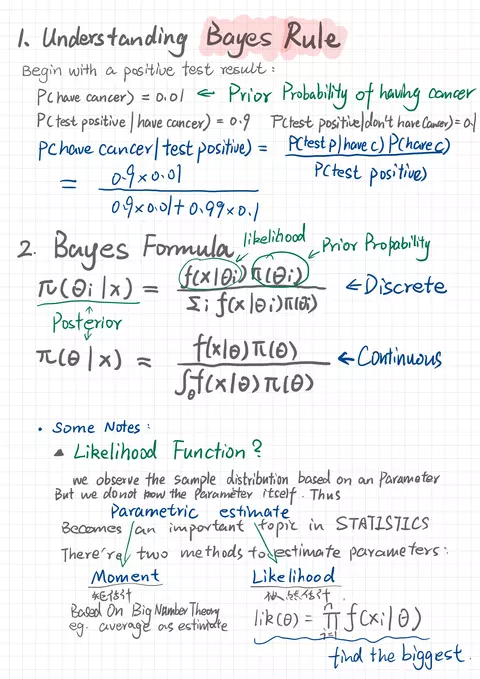 1. Understanding Bayes Rule
Begin with a positive test result:
P(have cancer) = 0.01 ← Prior Probability of having cancer
P(test positive | have cancer) = 0.9 P(test positive | don't have cancer) = 0.1
P(have cancer | test positive) = P(test p | have c) P(have c) / P(test positive)
= 0.9 × 0.01 / 0.9 × 0.01 + 0.99 × 0.1
2. Bayes Formula likelihood Prior Propability
π(θi | x) = f(x|θi) π(θi) / Σi f(x|θi) π(θi) ← Discrete
Posterior
π(θ | x) = f(x|θ) π(θ) / ∫θ f(x|θ) π(θ) ← Continuous
• Some Notes:
▲ Likelihood Function?
we observe the sample distribution based on an Parameter
But we do not know the Parameter itself. Thus
Parametric estimate
Becomes an important topic in STATISTICS
There're two methods to estimate parameters:
Moment Likelihood
矩估计
Based On Big Number Theory
eg. average as estimate
lik(θ) = ∏ f(xi | θ)
find the biggest.